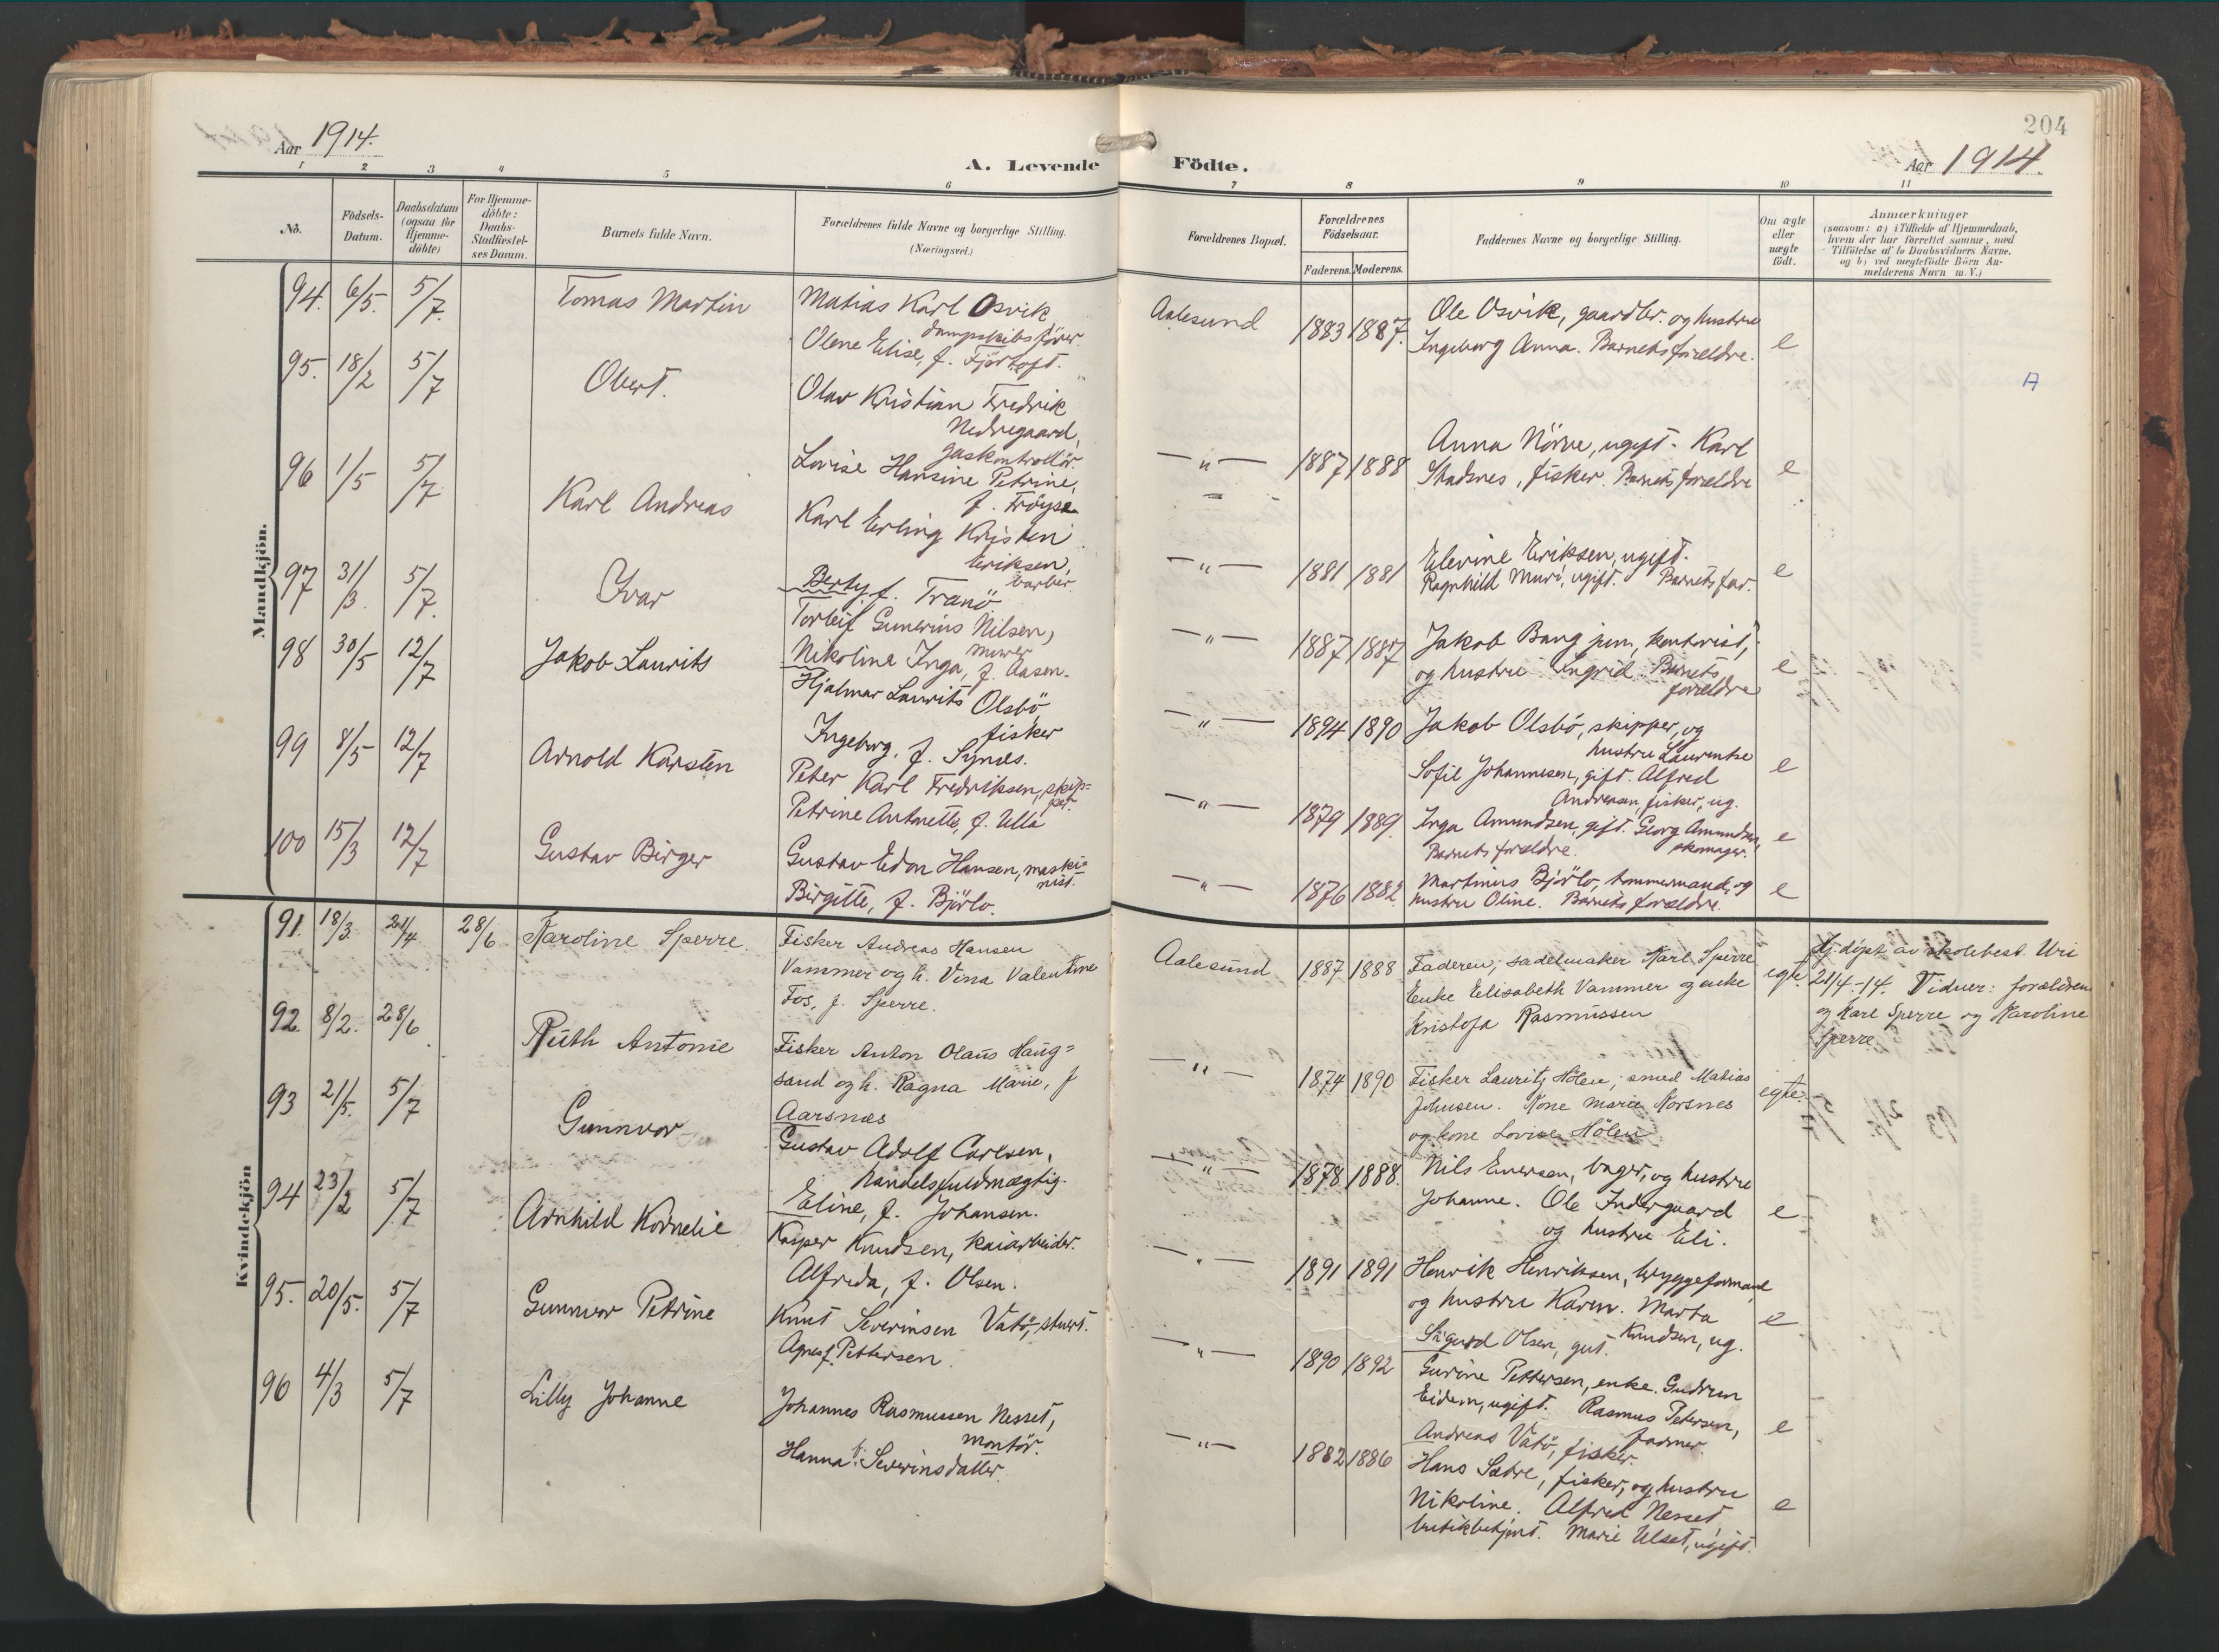 204
Aar 1914.
A. Levende Födte.
Aar 1914.
1 2 3 4 5 6 7 8 9 10 11
No.
Födsels-
Datum.
Daabsdatum
(ogsaa for
Hjemme-
döbte)
For Hjemme-
döbte:
Daabs-
Stadfæstel-
ses Datum.
Barnets fulde Navn.
Forældrenes fulde Navne og borgerlige Stilling.
(Næringsvei.)
Forældrenes Bopæl.
Forældrenes
Födselsaar.
Faderens. Moderens.
Faddernes Navne og borgerlige Stilling.
Om ægte
eller
uægte
födt.
Anmærkninger
(saasom: a) i Tilfælde af Hjemmedaab,
hvem der har forrettet samme, med
Tilföielse af to Daabsvidners Navne,
og b) ved uægtefödte Börn An-
melderens Navn m. V.)
Mandkjön.
94. 6/5. 5/7. Tomas Martin
Matias Karl Osvik
dampskibsförer.
Olene Elise, f. Fjörtoft.
Aalesund 1883 1887.
Ole Osvik, gaardbr. og hustru
Ingeborg Anna. Barnets forældre.
e
A
95. 18/2 5/7 Obert.
Olav Kristian Fredrik
Nedregaard,
gaskontrollör.
Lovise Hansine Petrine,
f. Fröysa
—"— 1887 1888
Anna Nörve, ugift. Karl
Stadsnes, fisker. Barnets forældre
e
96 1/5 5/7 Karl Andreas
Karl Erling Kristen
Eriksen,
barber.
Berly f. Tranö
—"— 1881 1881
Elevine Eriksen, ugift.
Ragnhild Muri, ugift. Barnets far.
e
97 31/3. 5/7. Ivar
Torleif Gunerius Nilsen,
murer
Nikoline Inga, f. Aasen.
—"— 1887 1887
Jakob Bang jun, kontorist,
og hustru Ingrid. Barnets
forældre
e
98 30/5 12/7 Jakob Laurits
Hjalmar Laurits Olsbö
fisker
Ingeborg, f. Synes.
—"— 1894 1890
Jakob Olsbö, skipper, og
hustru Laurentse
e
99 8/5 12/7 Arnold Karsten
Peter Karl Fredriksen, skip=
per.
Petrine Antonette, f. Ulla
—"— 1879 1889.
Sofie Johannesen, gift. Alfred
Andreasen, fisker, ug.
Inga Amundsen, gift. Georg Amundsen,
skomager.
Barnets forældre.
e
100 15/3 12/7 Gustav Birger
Gustav Edon Hansen, maski=
nist.
Birgitte, f. Björlo.
—"— 1876 1882.
Martinus Björlo, tömmermand, og
hustru Oline. Barnets forældre.
e
Kvindekjön
91. 18/3. 21/4 28/6 Karoline Sperre.
Fisker Andreas Hansen
Vammer og h. Vina Valentine
Fos, f. Sperre.
Aalesund 1887 1888
Faderen; sadelmaker Karl Sperre
Enke Elisabeth Vammer og enke
Kristofa Rasmussen
egte.
Hj. döpt av skolebest. Uri
21/4-14. Vidner: forældrene
og Karl Sperre og Karoline
Sperre
92. 8/2. 28/6. Ruth Antonie
Fisker Anton Olaus Haug=
sand og h. Ragna Marie, f
Aarsnes
—"— 1874 1890
Fisker Lauritz Hölen; smed Matias
Johnsen. Kone Marie Korsnes
og kone Lovise Hölen
egte.
93 21/5. 5/7 Gunnvor
Gustav Adolf Carlsen,
handelsfuldmægtig.
Eline, f. Johansen.
—"— 1878 1888.
Nils Emersen, bager, og hustru
Johanne. Ole Indergaard
og hustru Eli.
e
94 23/2 5/7 Arnhild Kornelie
Kasper Knudsen, kaiarbeider.
Alfreda, f. Olsen.
—"— 1891 1891
Henrik Henriksen, bryggeformand
og hustru Karen. Marta
Knudsen, ug.
Sigurd Olsen, gut.
e
95. 20/5. 5/7 Gunnvor Petrine
Knut Severinsen Vatö, stuert.
Agnes f. Pettersen.
—"— 1890 1892
Gurine Pettersen, enke. Gudrun
Eidem, ugift. Rasmus Petersen,
farmer.
Andreas Vatö, fisker.
e
96 4/3 5/7 Lilly Johanne
Johannes Rasmussen Nesset,
montör.
Hanna f. Severinsdatter.
—"— 1882 1886
Hans Sætre, fisker, og hustru
Nikoline. Alfred Nesset
butikbetjent. Marie Ulset, ugift.
e